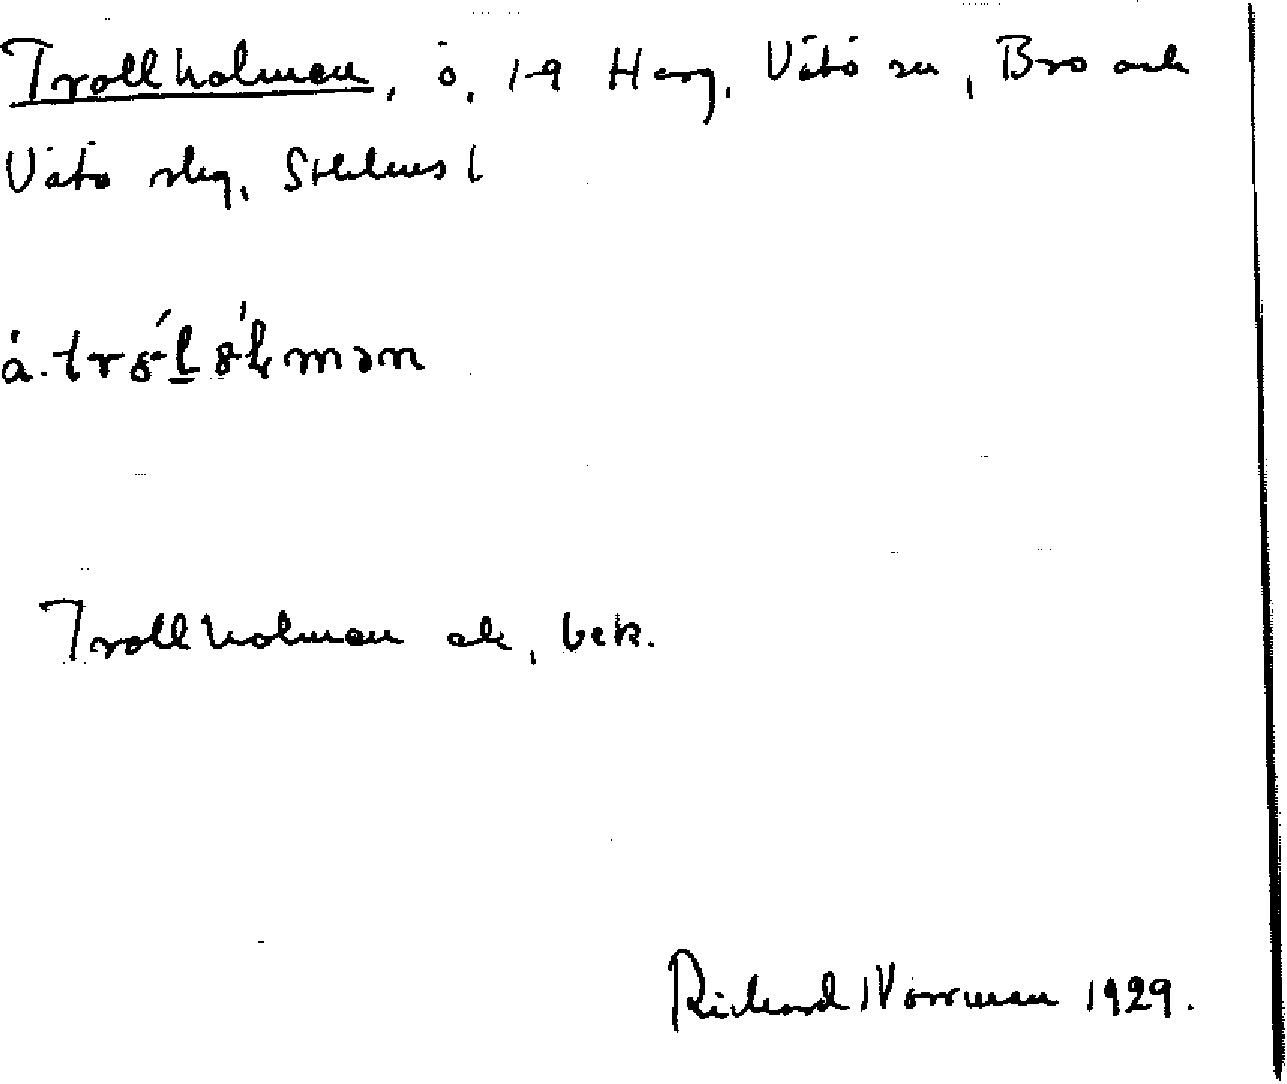 Trollholmen, ö, 1-9 Harg, Vätö sn, Bro och
Vätö skg, Sthlms l
å. trólólmən
Trollholmen ek, bek.
Rickard Norrman 1929.